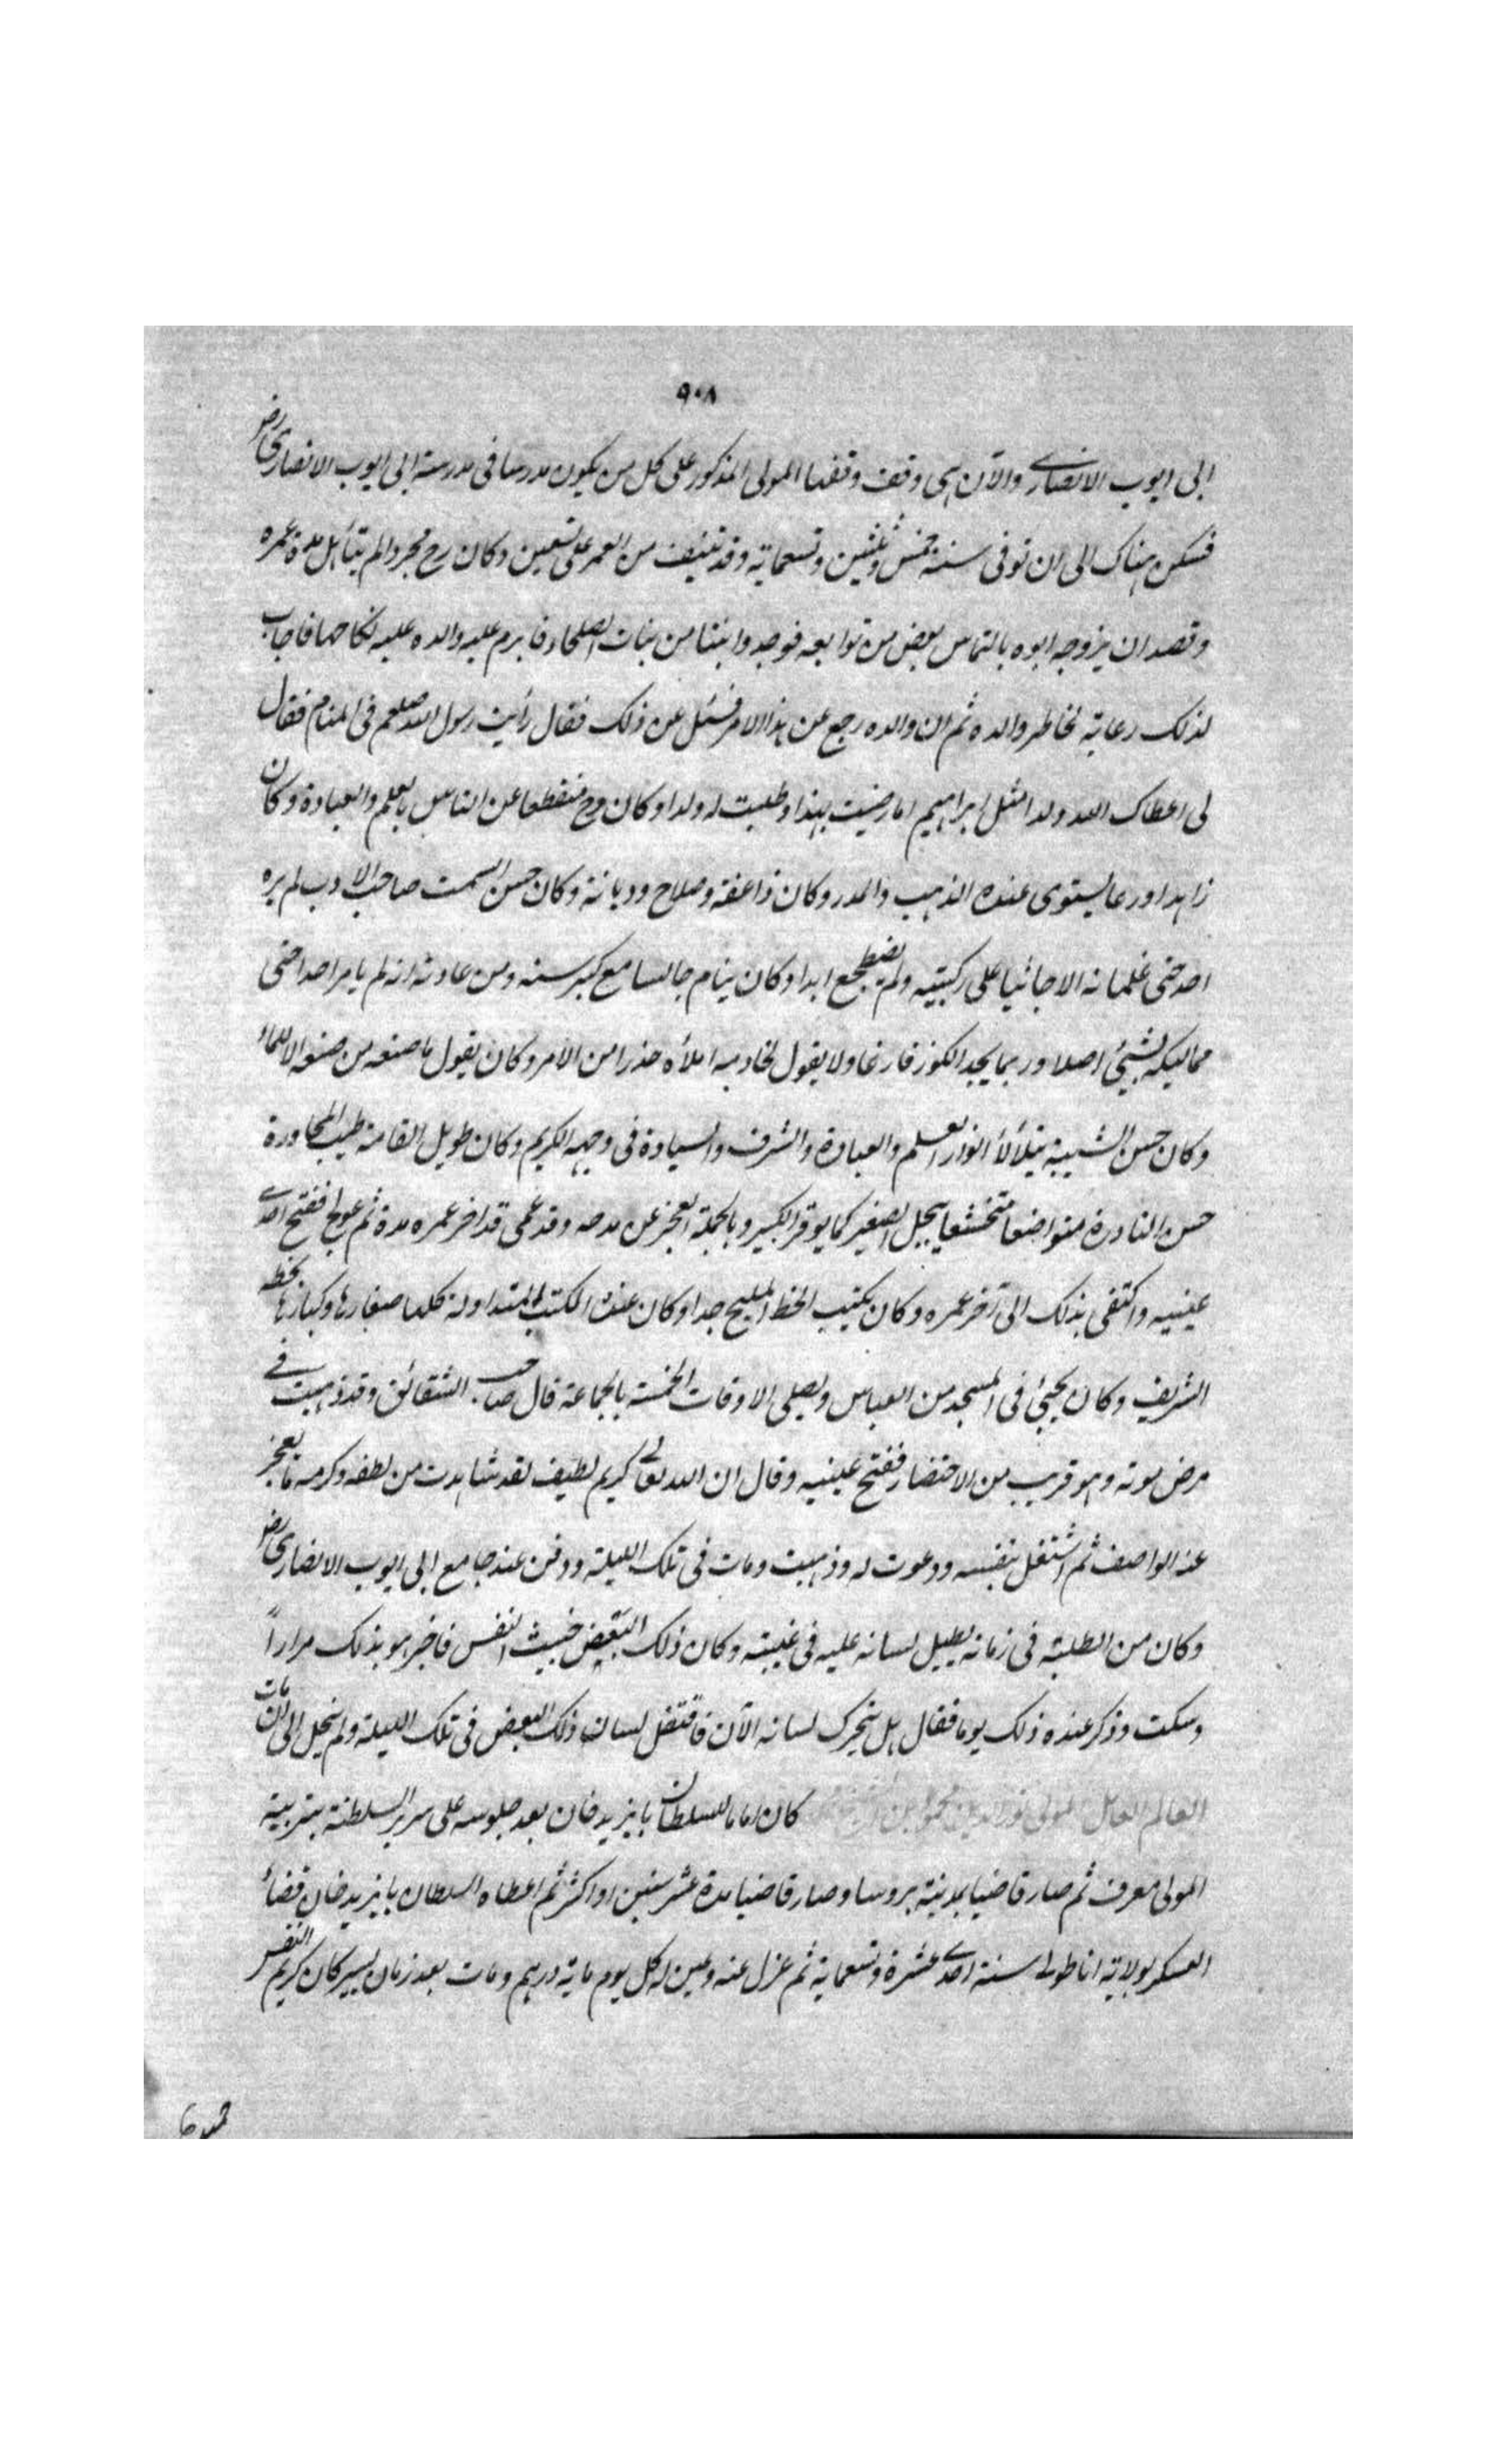 ٩٠٨
ابى ايوب الانصارى والآن هى وقف وقفها المولى المذكور على كل من يكون مدرسا فى مدرسة ابى ايوب الانصارى رض
فسكن هناك الى ان توفى سنة خمس وثلثين وتسعماية وقد نيف من العمر على تسعين وكان رح مجردا لم يتأهل مدة عمره
وقصد ان يزوجه ابوه بالتماس بعض من توابعه فوجدوا بنتا من بنات الصلحاء فابرم عليه والده عليه نكاحها فاجاب
لذلك رعاية لخاطر والده ثم ان والده رجع عن هذا الامر فسئل عن ذلك فقال رأيت رسول الله صلعم فى المنام فقال
لى اعطاك الله ولدا مثل ابراهيم اما رضيت بهذا وطلبت له ولدا وكان رح منقطعا عن الناس بالعلم والعبادة وكان
زاهدا ورعا يستوى عنده الذهب والمدر وكان ذا عفة وصلاح وديانة وكان حسن السمت صاحب الادب لم يره
احد حتى غلمانه الا جاثيا على ركبتيه ولم يضطجع ابدا وكان ينام جالسا مع كبر سنه ومن عادته انه لم يأمر احدا حتى
مماليكه بشيئ اصلا وربما يجد الكوز فارغا ولا يقول لخادمه املأه حذرا من الأمر وكان يقول ما صنعه من صنعه الا للماء
وكان حسن الشيبة يتلألأ انوار العلم والعبادة والشرف والسيادة فى وجهه الكريم وكان طويل القامة طيب المحاورة
حسن النادرة متواضعا متخشعا يبجل الصغير كما يوقر الكبير وبالجملة العجز عن مدحه وقد عمى قد اخر عمره مدة ثم عولج ففتح احدى
عينيه واكتفى بذلك الى آخر عمره وكان يكتب الخط المليح جدا وكان عنده الكتب المتداولة كلها صغارها وكبارها بخطه
الشريف وكان يجيئ فى المسجد من العباس ويصلى الاوقات الخمسة بالجماعة قال صاحب الشقائق وقد ذهبت فى
مرض موته وهو قريب من الاحتضار ففتح عينيه وقال ان الله تعالى كريم لطيف لقد شاهدت من لطفه وكرمه ما يعجز
عنه الواصف ثم اشتغل بنفسه ودعوت له وذهبت ومات فى تلك الليلة ودفن عند جامع ابى ايوب الانصارى رض
وكان من الطلبة فى زمانه يطيل لسانه عليه فى غيبته وكان ذلك البعض خبيث النفس فاخبر هو بذلك مراراً
وسكت وذكر عنده ذلك يوما فقال هل يتحرك لسانه الآن فاقتفل لسان ذلك البعض فى تلك الليلة ولم ينحل الى ان مات
العالم العامل المولى نور الدين كان اماما للسلطان بايزيد خان بعد جلوسه على سرير السلطنة بتربية
المولى معرف ثم صار قاضيا بمدينة بروسا وصار قاضيا مدة عشر سنين او اكثر ثم اعطاه السلطان بايزيد خان قضاء
العسكر بولاية اناطولى سنة احدى عشرة وتسعماية ثم عزل عنه وعين له كل يوم ماية درهم ومات بعد زمان يسير كان كريم النفس